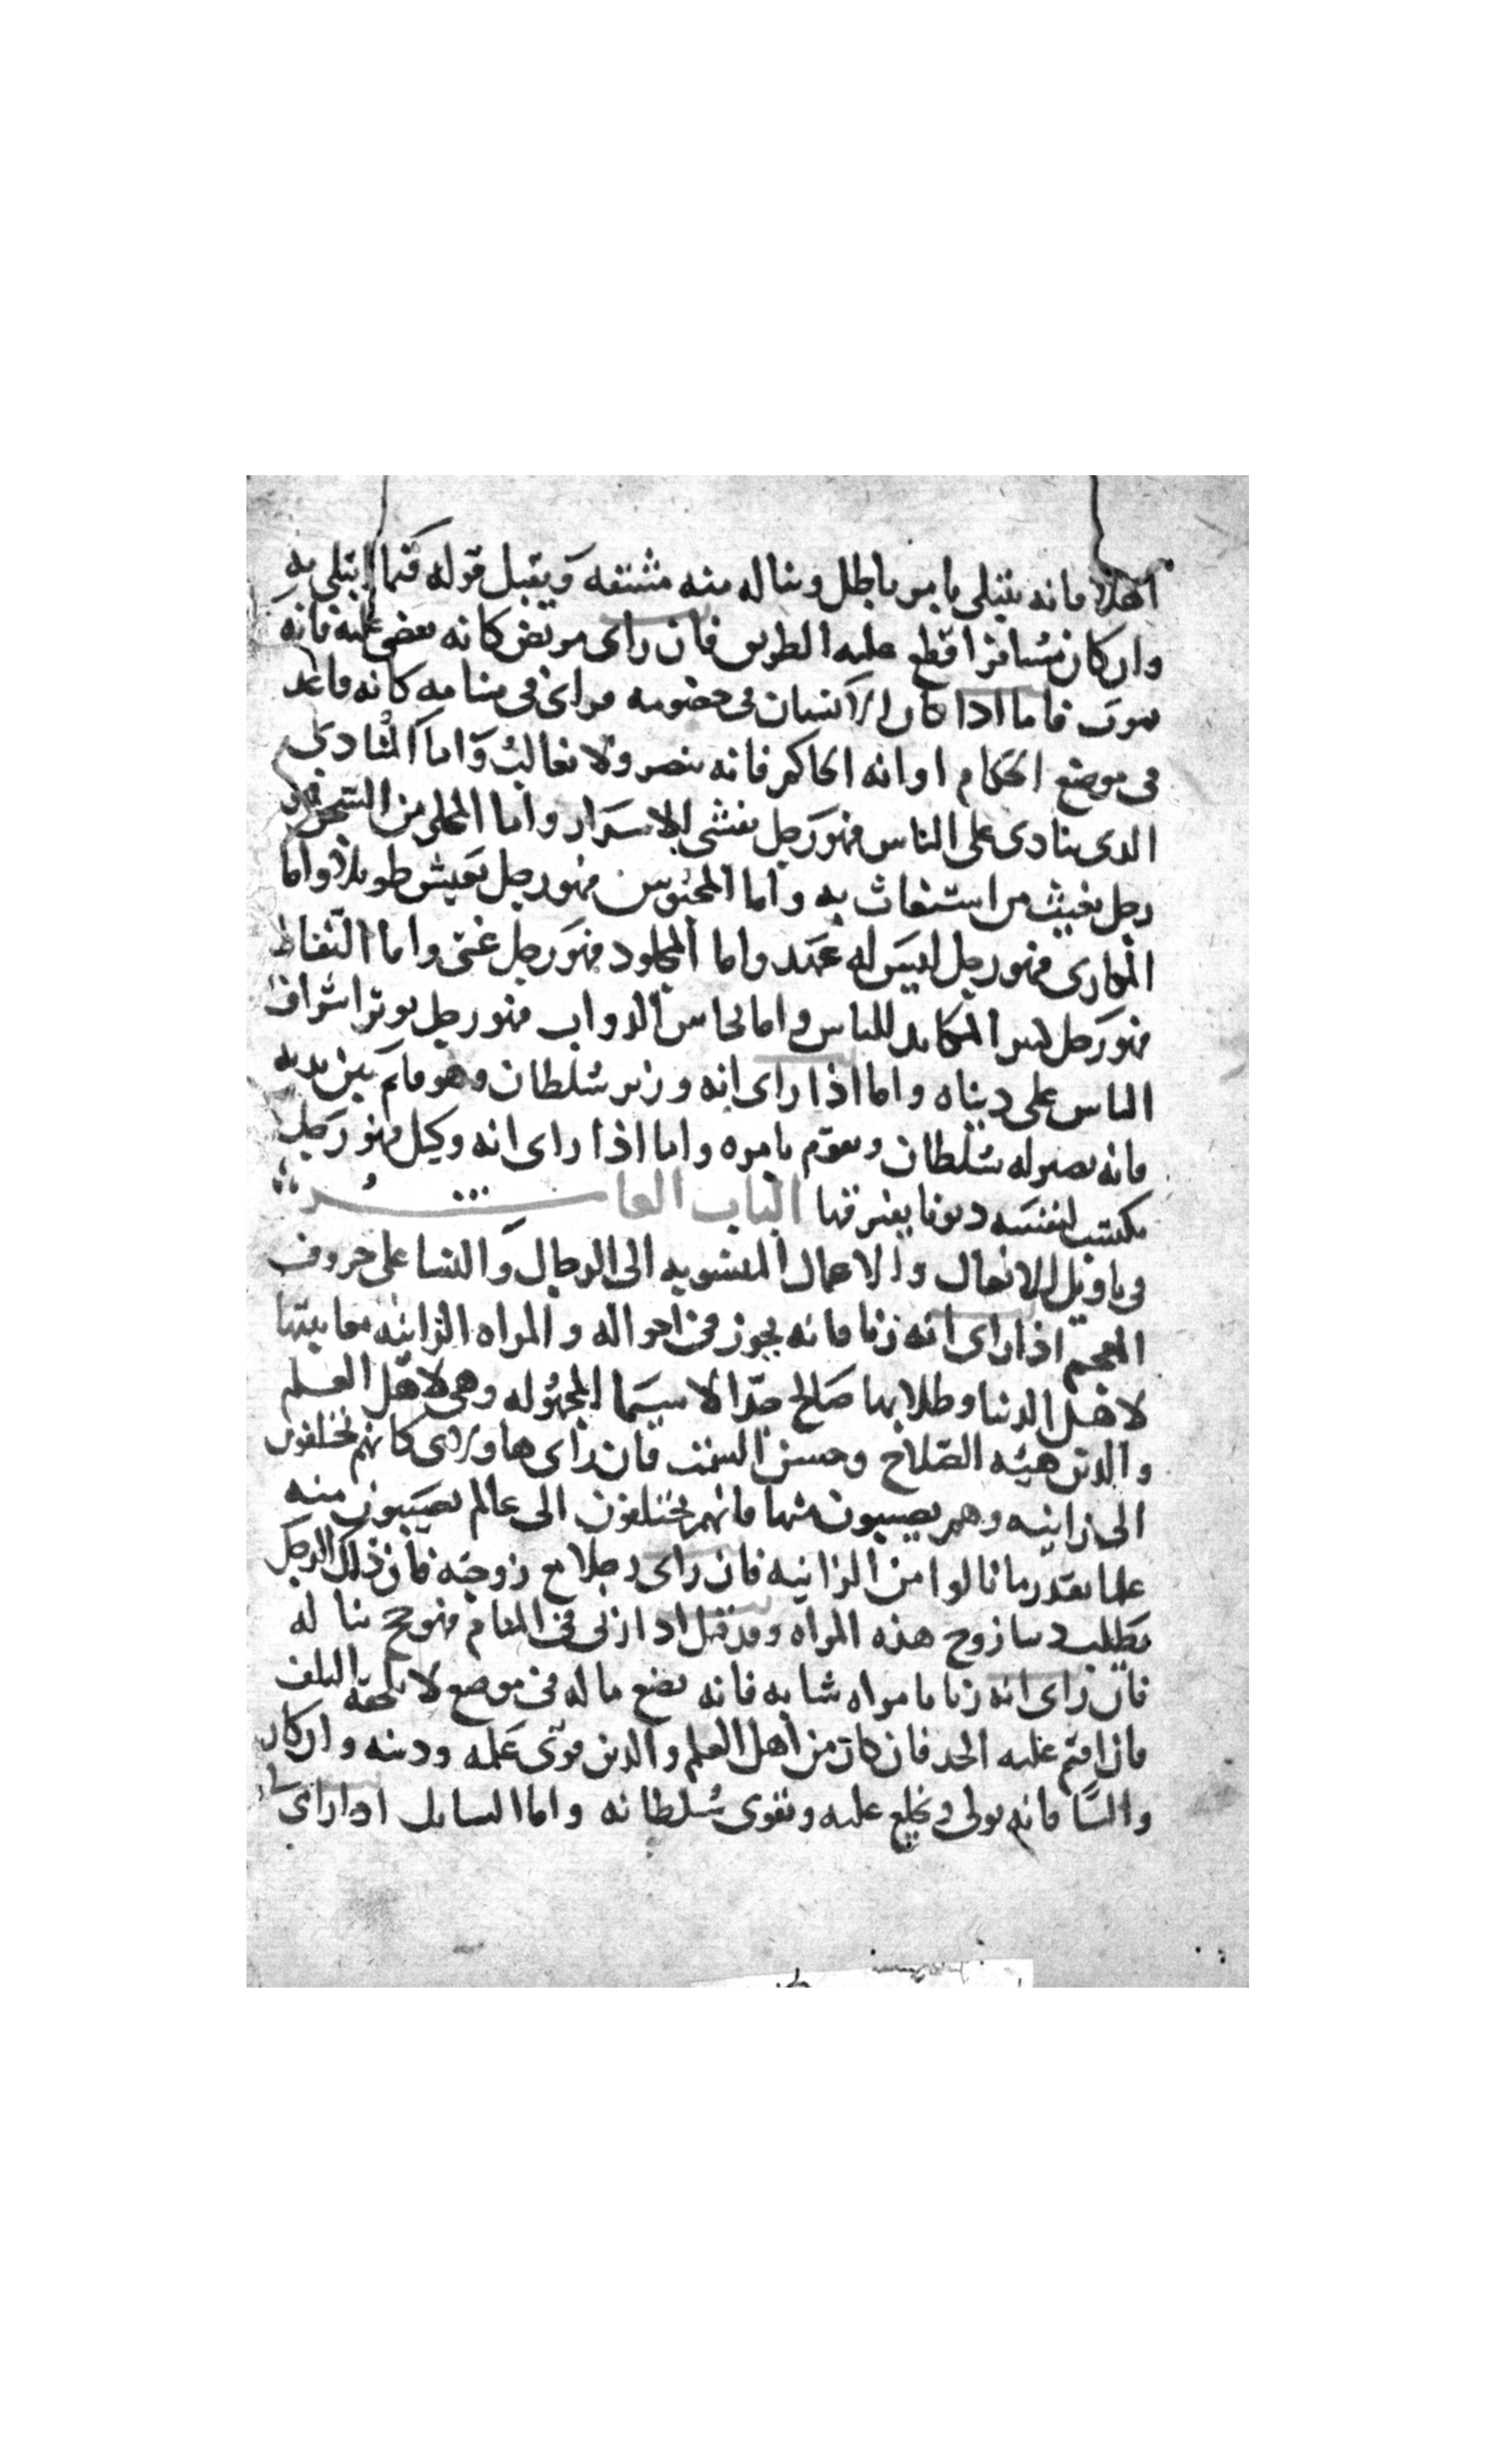 اهلا فانه يبتلى بامر باطل ويناله منه مشقه ويقبل قوله فيما ابتلى به
وان كان مسافرا قطع عليه الطريق فان راى مريض كانه يقضى عليه فانه
يموت فاما اذا كان الانسان فى خصومه وراى فى منامه كانه قاعد
فى موضع الحكام او انه الحاكم فانه ينصر ولا يغالب واما المنادى
الدى ينادى على الناس فهو رجل يفشى الاسرار واما المخلى من السجن
رجل يغيث من استغاث به واما المحبوس فهو رجل يعيش طويلا واما
المكارى فهو رجل ليس له عهد واما المجلود فهو رجل غنى واما النفاط
فهو رجل المكايد للناس واما نحاس الدواب فهو رجل يوثر اشراف
الناس على دنياه واما اذا راى انه وزير سلطان وهو قايم بين يديه
فانه يصير له سلطان ويقوم بامره واما اذا راى انه وكيل فهو رجل
يكتسب لنفسه ديونا يغترفها الباب العاشر
فى تاويل الافعال والاعمال المنسوبه الى الرجال والنسا على حروف
المعجم اذا راى انه زنا فانه يجوز فى احواله والمراه الزانيه معاينتها
لاهل الدنيا وطلابها صالح جدا لا سيما المجهوله وهى لاهل العلم
والدين هيئه الصلاح وحسن السمت فان راى كانهم يختلفون
الى زانيه وهم يصيبون منها فانهم يختلفون الى عالم يصيبون منه
علما بقدر ما نالوا من الزانيه فان راى رجلا مع زوجته فان ذلك الرجل
يطلب دنيا زوج هذه المراه وقد قيل اذا زنى فى المنام فهو حج يناله
فان راى انه زنا بامراه شابه فانه يضع ماله فى موضع لا يلحقه التلف
فان اقيم عليه الحد فان كان من اهل العلم والدين قوى علمه ودينه وان كان
واليا فانه يولى ويخلع عليه ويقوى سلطانه واما السايل اذا راى